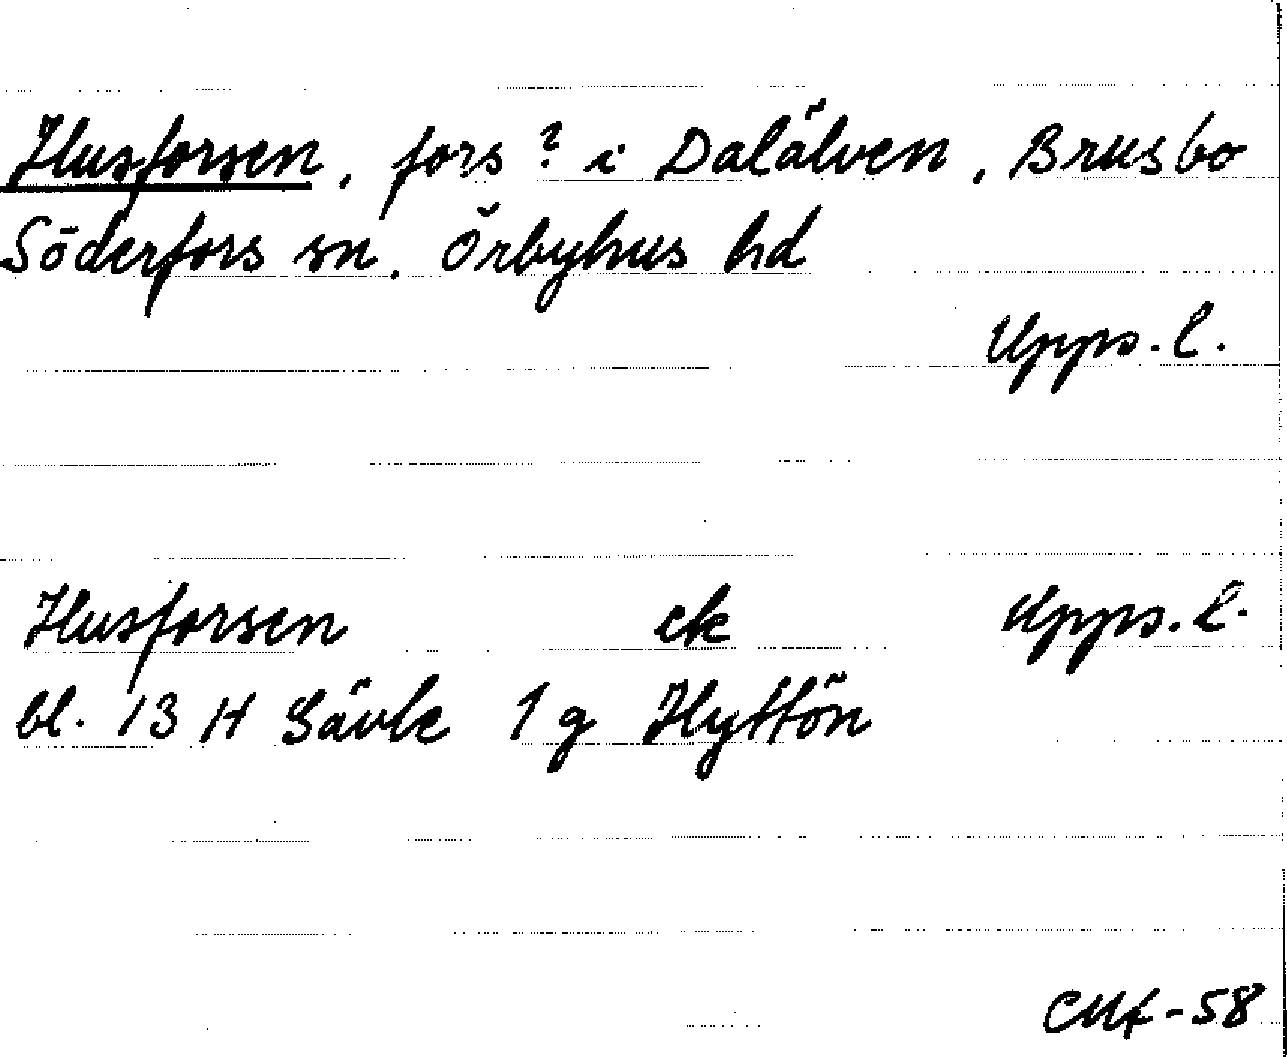 Husforsen, fors? i Dalälven, Brusbo
Söderfors sn. Örbyhus hd
Upps. l.
Husforsen ek Upps. l.
bl. 13 H Gävle 1 g Hyttön
CMf-58